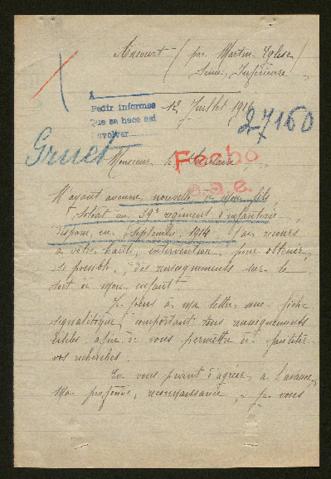 Ancourt (par Martin-Eglise)
Seine Inférieure
A
Pedir informes
Que se hace asi
volver
12 Juillet 1916
27160
Gruet
Monsieur le
Fecho
a.e.
N'ayant aucune nouvelle de mon fils,
Soldat au 39e régiment d'infanterie,
disparu en Septembre 1914 j'ai recours
à votre haute intervention pour obtenir,
si possible, des renseignements sur le
sort de mon enfant.
Je joins à ma lettre une fiche
signalétique comportant tous renseignements
utiles afin de vous permettre de faciliter
vos recherches.
En vous priant d'agréer, à l'avance,
ma profonde reconnaissance, je vous